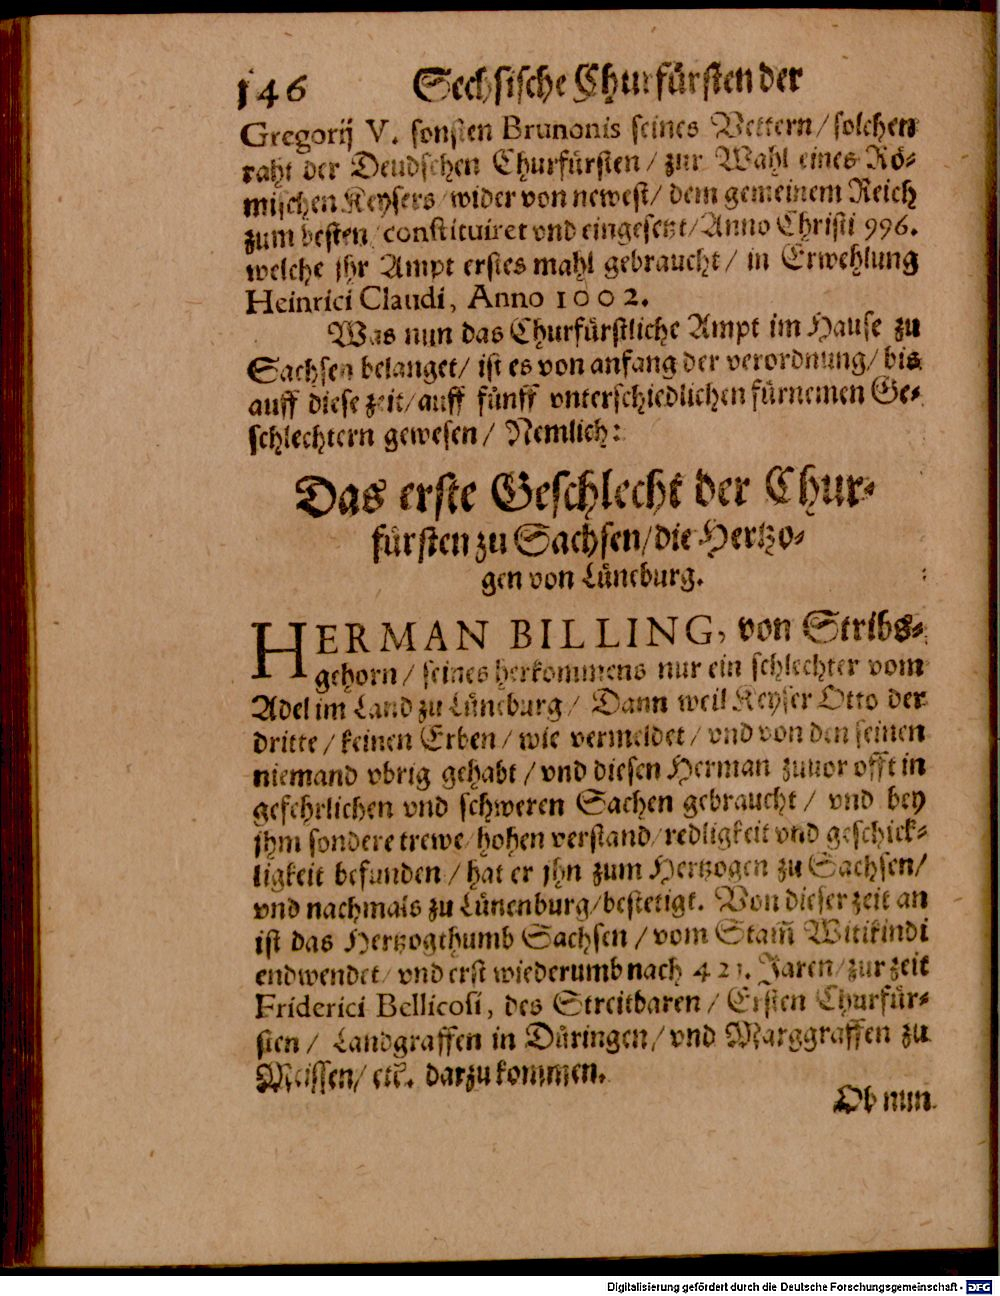 146 Sechsische Churfürsten der
Gregorij V. sonsten Brunonis seines Vettern/ solchen
raht der Deudschen Churfürsten/ zur Wahl eines Rö-
mischen Keysers/ wider von newest/ dem gemeinem Reich
zum besten/ constituiret vnd eingesetzt/ Anno Christi 996.
welche jhr Ampt erstes mahl gebraucht/ in Erwehlung
Heinrici Claudi, Anno 1002.
Was nun das Churfürstliche Ampt im Hause zu
Sachsen belanget/ ist es von anfang der verordnung/ bis
auff diese zeit/ auff fünff vnterschiedlichen fürnemen Ge-
schlechtern gewesen/ Nemlich:
Das erste Geschlecht der Chur-
fürsten zu Sachsen/ die Hertzo-
gen von Lüneburg.
HERMAN BILLING, von Stribs-
gehorn/ seines herkommens nur ein schlechter vom
Adel im Land zu Lüneburg/ Dann weil Keyser Otto der
dritte/ keinen Erben/ wie vermeldet/ vnd von den seinen
niemand vbrig gehabt/ vnd diesen Herman zuuor offt in
gefehrlichen vnd schweren Sachen gebraucht/ vnd bey
jhm sondere trewe/ hohen verstand/ redligkeit vnd geschick-
ligkeit befunden/ hat er jhn zum Hertzogen zu Sachsen/
vnd nachmals zu Lünenburg/ bestetigt. Von dieser zeit an
ist das Hertzogthumb Sachsen/ vom Stam̃ Witikindi
endwendet/ vnd erst wiederumb nach 421. Jaren/ zur zeit
Friderici Bellicosi, des Streitbaren/ Ersten Churfür-
sten/ Landgraffen in Düringen/ vnd Marggraffen zu
Meissen/ etc. darzu kommen.
Ob nun
Digitalisierung gefördert durch die Deutsche Forschungsgemeinschaft - DFG